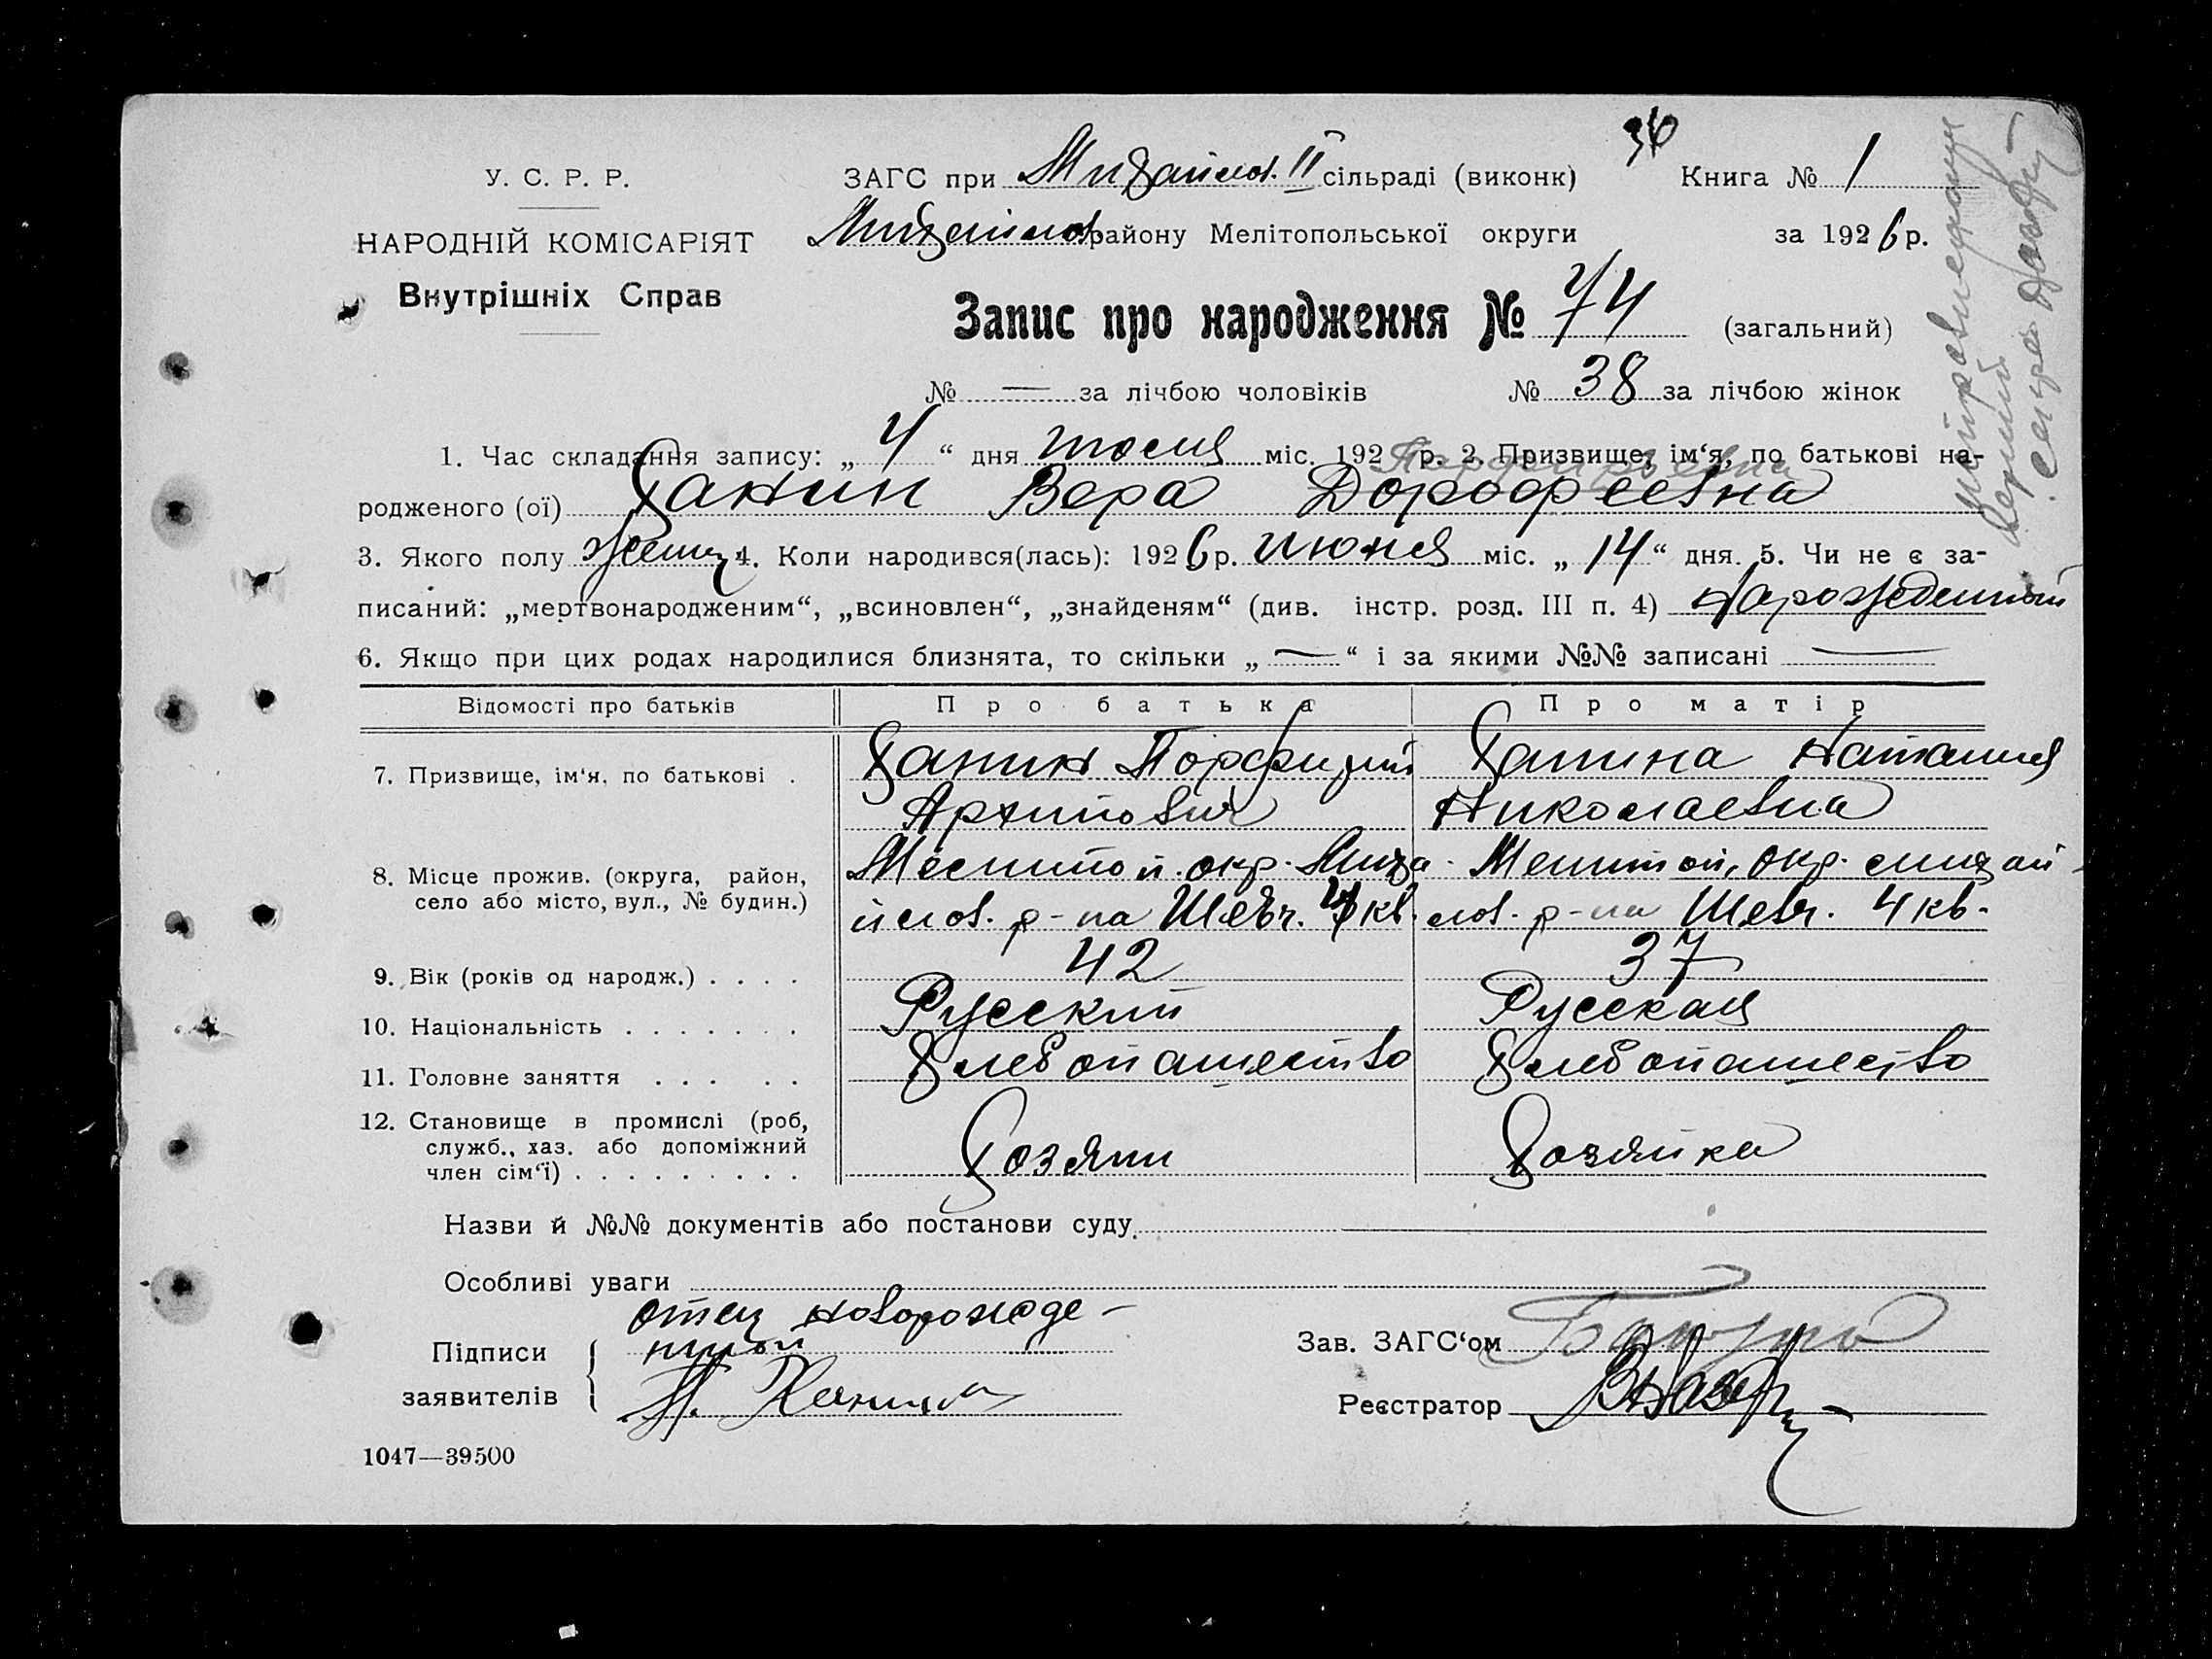 36
У. С. Р. Р.
ЗАГС при Михайлов. II сільраді (виконк)
Книга № 1
НАРОДНІЙ КОМІСАРІЯТ
Михайлов району Мелітопольської округи
за 1926 р.
Внутрішніх Справ
Запис про народження № 74 (загальний)
№ — за лічбою чоловіків № 38 за лічбою жінок
1. Час складання запису: „ 4 “ дня июля міс. 192 р. 2. Призвище, ім‘я, по батькові на-
Порфирьевна
родженого (ої) Ханин Вера Дорофеевна
3. Якого полу женщ 4. Коли народився(лась): 1926 р. июня міс. „ 14 “ дня. 5. Чи не є за-
писаний: „мертвонародженим“, „всиновлен“, „знайденям“ (див. інстр. розд. III п. 4) нарожденный
6. Якщо при цих родах народилися близнята, то скільки „ — “ і за якими №№ записані —
Відомості про батьків
Про батька
Про матір
7. Призвище, ім‘я, по батькові .
Ханин Порфирий
Архипович
Ханина Наталия
Николаевна
8. Місце прожив. (округа, район,
село або місто, вул., № будин.)
Мелитоп окр. Миха
йлов. р-на Шевч. 4 кв.
Мелитоп. окр. михай
лов. р-на Шевч. 4 кв.
9. Вік (років од народж.) . . . .
42
37
10. Національність . . . . . . .
Русский
Русская
11. Головне заняття . . . . .
Хлебопашество
Хлебопашество
12. Становище в промислі (роб,
служб., хаз. або допоміжний
член сім‘ї) . . . . . . . . .
Хозяин
Хозяйка
Назви й №№ документів або постанови суду.
Особливі уваги
отец новорожде-
нной
Підписи
заявителів
П. Ханин
Зав. ЗАГС‘ом
Реєстратор
1047—39500